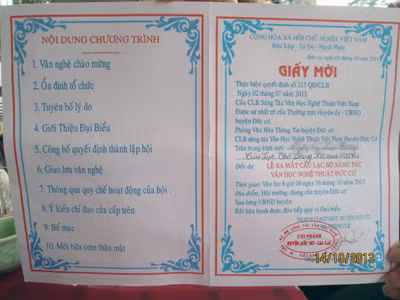 NỘI DUNG CHƯƠNG TRÌNH
1. Văn nghệ chào mừng
2. Ổn định tổ chức
3. Tuyên bố lý do
4. Giới Thiệu Đại Biểu
5. Công bố quyết định thành lập hội
6. Giao lưu văn nghệ
7. Thông qua quy chế hoạt động của hội
8. Ý kiến chỉ đạo của cấp trên
9. Bế mạc
10. Mời bữa cơm thân mật
CỘNG HÒA XÃ HỘI CHỦ NGHĨA VIỆT NAM
Độc Lập - Tự Do - Hạnh Phúc
GIẤY MỜI
Thực hiện quyết định số 213 QĐ/CLB
Ngày 02 tháng 07 năm 2013
Của CLB Sáng Tác Văn Học Nghệ Thuật Việt Nam
Được sự nhất trí của Thường trực Huyện ủy - UBND
huyện Đức cơ.
Phòng Văn Hóa Thông Tin huyện Đức cơ
CLB sáng tác Văn Học Nghệ Thuật Việt Nam Huyện Đức Cơ
Trân trọng kính mời:
Đến dự: LỄ RA MẮT CÂU LẠC BỘ SÁNG TÁC
VĂN HỌC NGHỆ THUẬT ĐỨC CƠ
Thời gian: Vào lúc 8 giờ 00 ngày 16 tháng 10 năm 2013
Địa điểm: Hội trường chung của huyện Đức cơ
Sau lưng UBND huyện
Rất hân hạnh được đón tiếp quý vị Đại biểu
CHI NHÁNH
HUYỆN ĐỨC CƠ-GIA LAI
14/10/2013